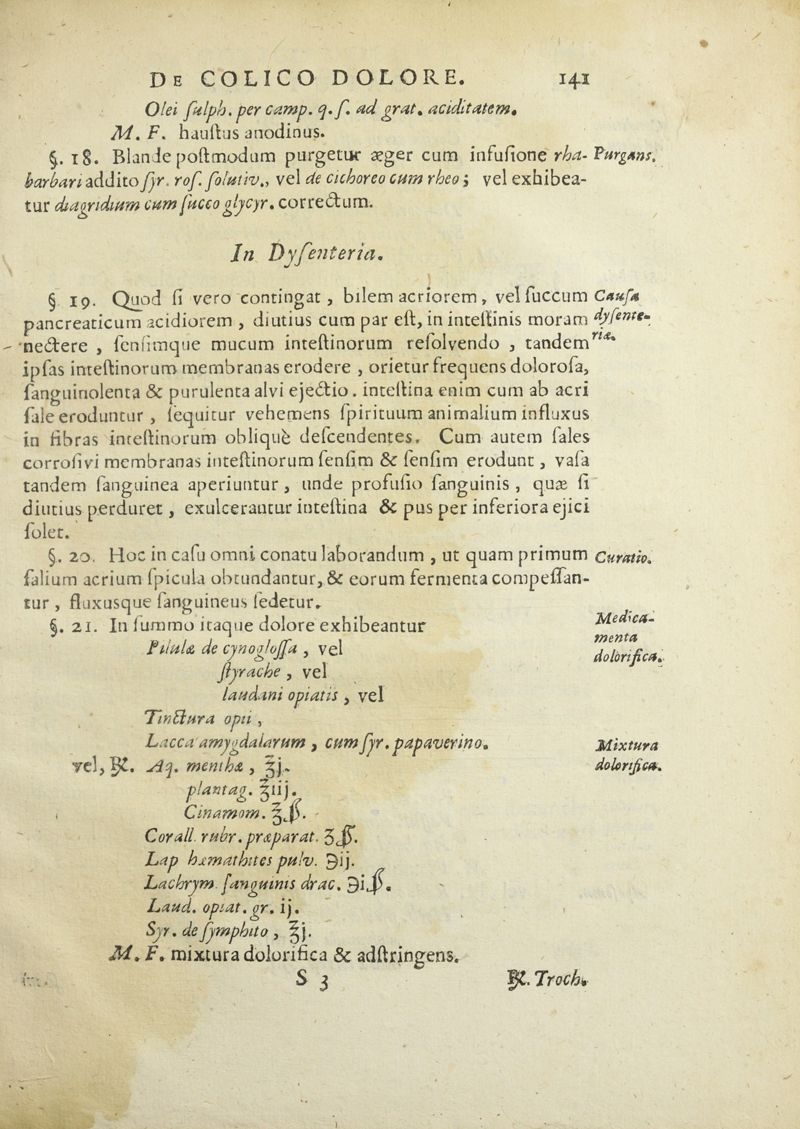 De COLICO DOLORE. 141
Olei ſulph. per camp. q. ſ. ad grat. aciditatem.
M. F. hauſtus anodinus.
§. 18. Blande poſtmodum purgetur æger cum infuſione rha- Purgans.
barbari addito ſyr. roſ. ſolutiv., vel de cichoreo cum rheo; vel exhibea-
tur diagridium cum ſucco glycyr. correctum.
In Dyſenteria.
§ 19. Quod ſi vero contingat, bilem acriorem, vel ſuccum Cauſa
pancreaticum acidiorem, diutius cum par eſt, in inteſtinis moram dyſente-
nectere, ſenſimque mucum inteſtinorum reſolvendo, tandem riæ.
ipſas inteſtinorum membranas erodere, orietur frequens doloroſa,
ſanguinolenta & purulenta alvi ejectio. inteſtina enim cum ab acri
ſale eroduntur, ſequitur vehemens ſpirituum animalium influxus
in fibras inteſtinorum obliquè deſcendentes. Cum autem ſales
corroſivi membranas inteſtinorum ſenſim & ſenſim erodunt, vaſa
tandem ſanguinea aperiuntur, unde profuſio ſanguinis, quæ ſi
diutius perduret, exulcerantur inteſtina & pus per inferiora ejici
ſolet.
§. 20. Hoc in caſu omni conatu laborandum, ut quam primum Curatio.
ſalium acrium ſpicula obtundantur, & eorum fermenta compeſſan-
tur, fluxusque ſanguineus ſedetur.
§. 21. In ſummo itaque dolore exhibeantur Medica-
menta
Pilulæ de cynogloſſa, vel dolorifica.
ſtyrache, vel
laudani opiatis, vel
Tinctura opii,
Lacca amygdalarum, cum ſyr. papaverino. Mixtura
vel, ℞. Aq. menthæ, ℥j. dolorifica.
plantag. ℥iij.
Cinamom. ℥ß.
Corall. rubr. præparat. ʒß.
Lap hæmathites pulv. ℈ij.
Lachrym. ſanguinis drac. ℈iß.
Laud. opiat. gr. ij.
Syr. de ſymphito, ℥j.
M. F. mixtura dolorifica & adſtringens.
S 3 ℞. Troch.